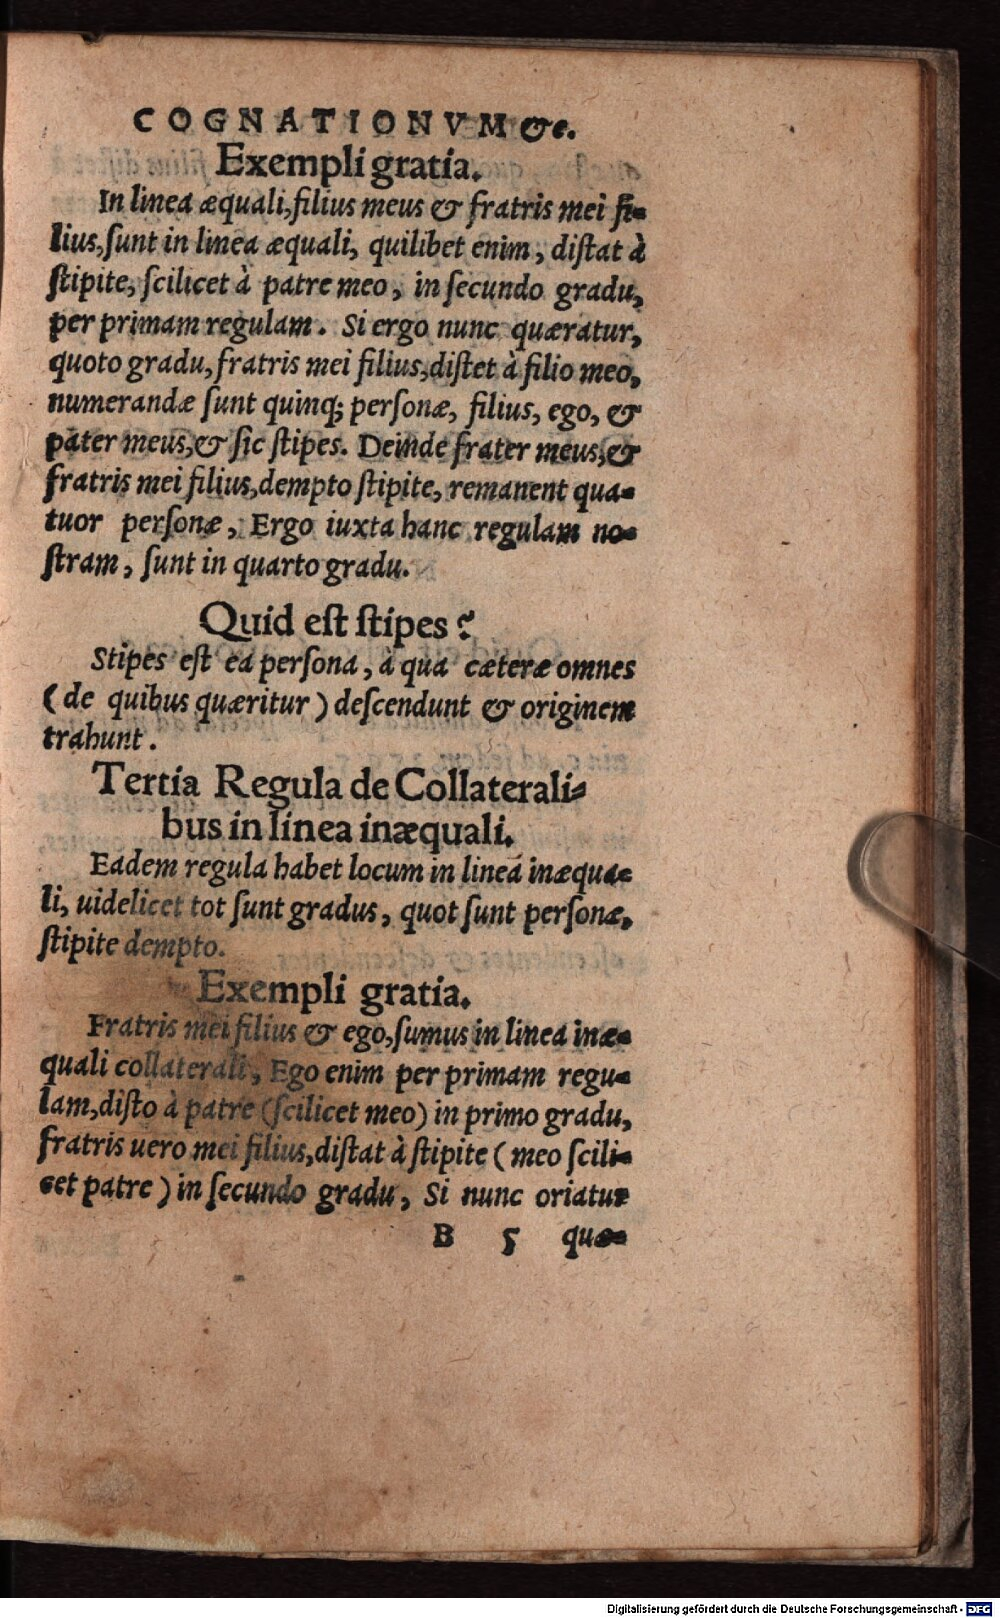 COGNATIONVM &c.
Exempli gratia.
In linea æquali, filius meus & fratris mei fi-
lius, ſunt in linea æquali, quilibet enim, diſtat à
ſtipite, ſcilicet à patre meo, in ſecundo gradu,
per primam regulam. Si ergo nunc quæratur,
quoto gradu, fratris mei filius, diſtet à filio meo,
numerandæ ſunt quinq; perſonæ, filius, ego, &
pater meus, & ſic ſtipes. Deinde frater meus, &
fratris mei filius, dempto ſtipite, remanent qua-
tuor perſonæ, Ergo iuxta hanc regulam no-
ſtram, ſunt in quarto gradu.
Quid eſt ſtipes?
Stipes eſt ea perſona, a qua cæteræ omnes
(de quibus quæritur) deſcendunt & originem
trahunt.
Tertia Regula de Collaterali-
bus in linea inæquali.
Eadem regula habet locum in lineã inæqua-
li, uidelicet tot ſunt gradus, quot ſunt perſonæ,
ſtipite dempto.
Exempli gratia.
Fratris mei filius & ego, ſumus in linea inæ-
quali collaterali, Ego enim per primam regu-
lam, diſto à patre (ſcilicet meo) in primo gradu,
fratris uero mei filius, diſtat à ſtipite (meo ſcili-
cet patre) in ſecundo gradu, Si nunc oriatur
B 5 quæ-
Digitalisierung gefördert durch die Deutsche Forschungsgemeinschaft - DFG